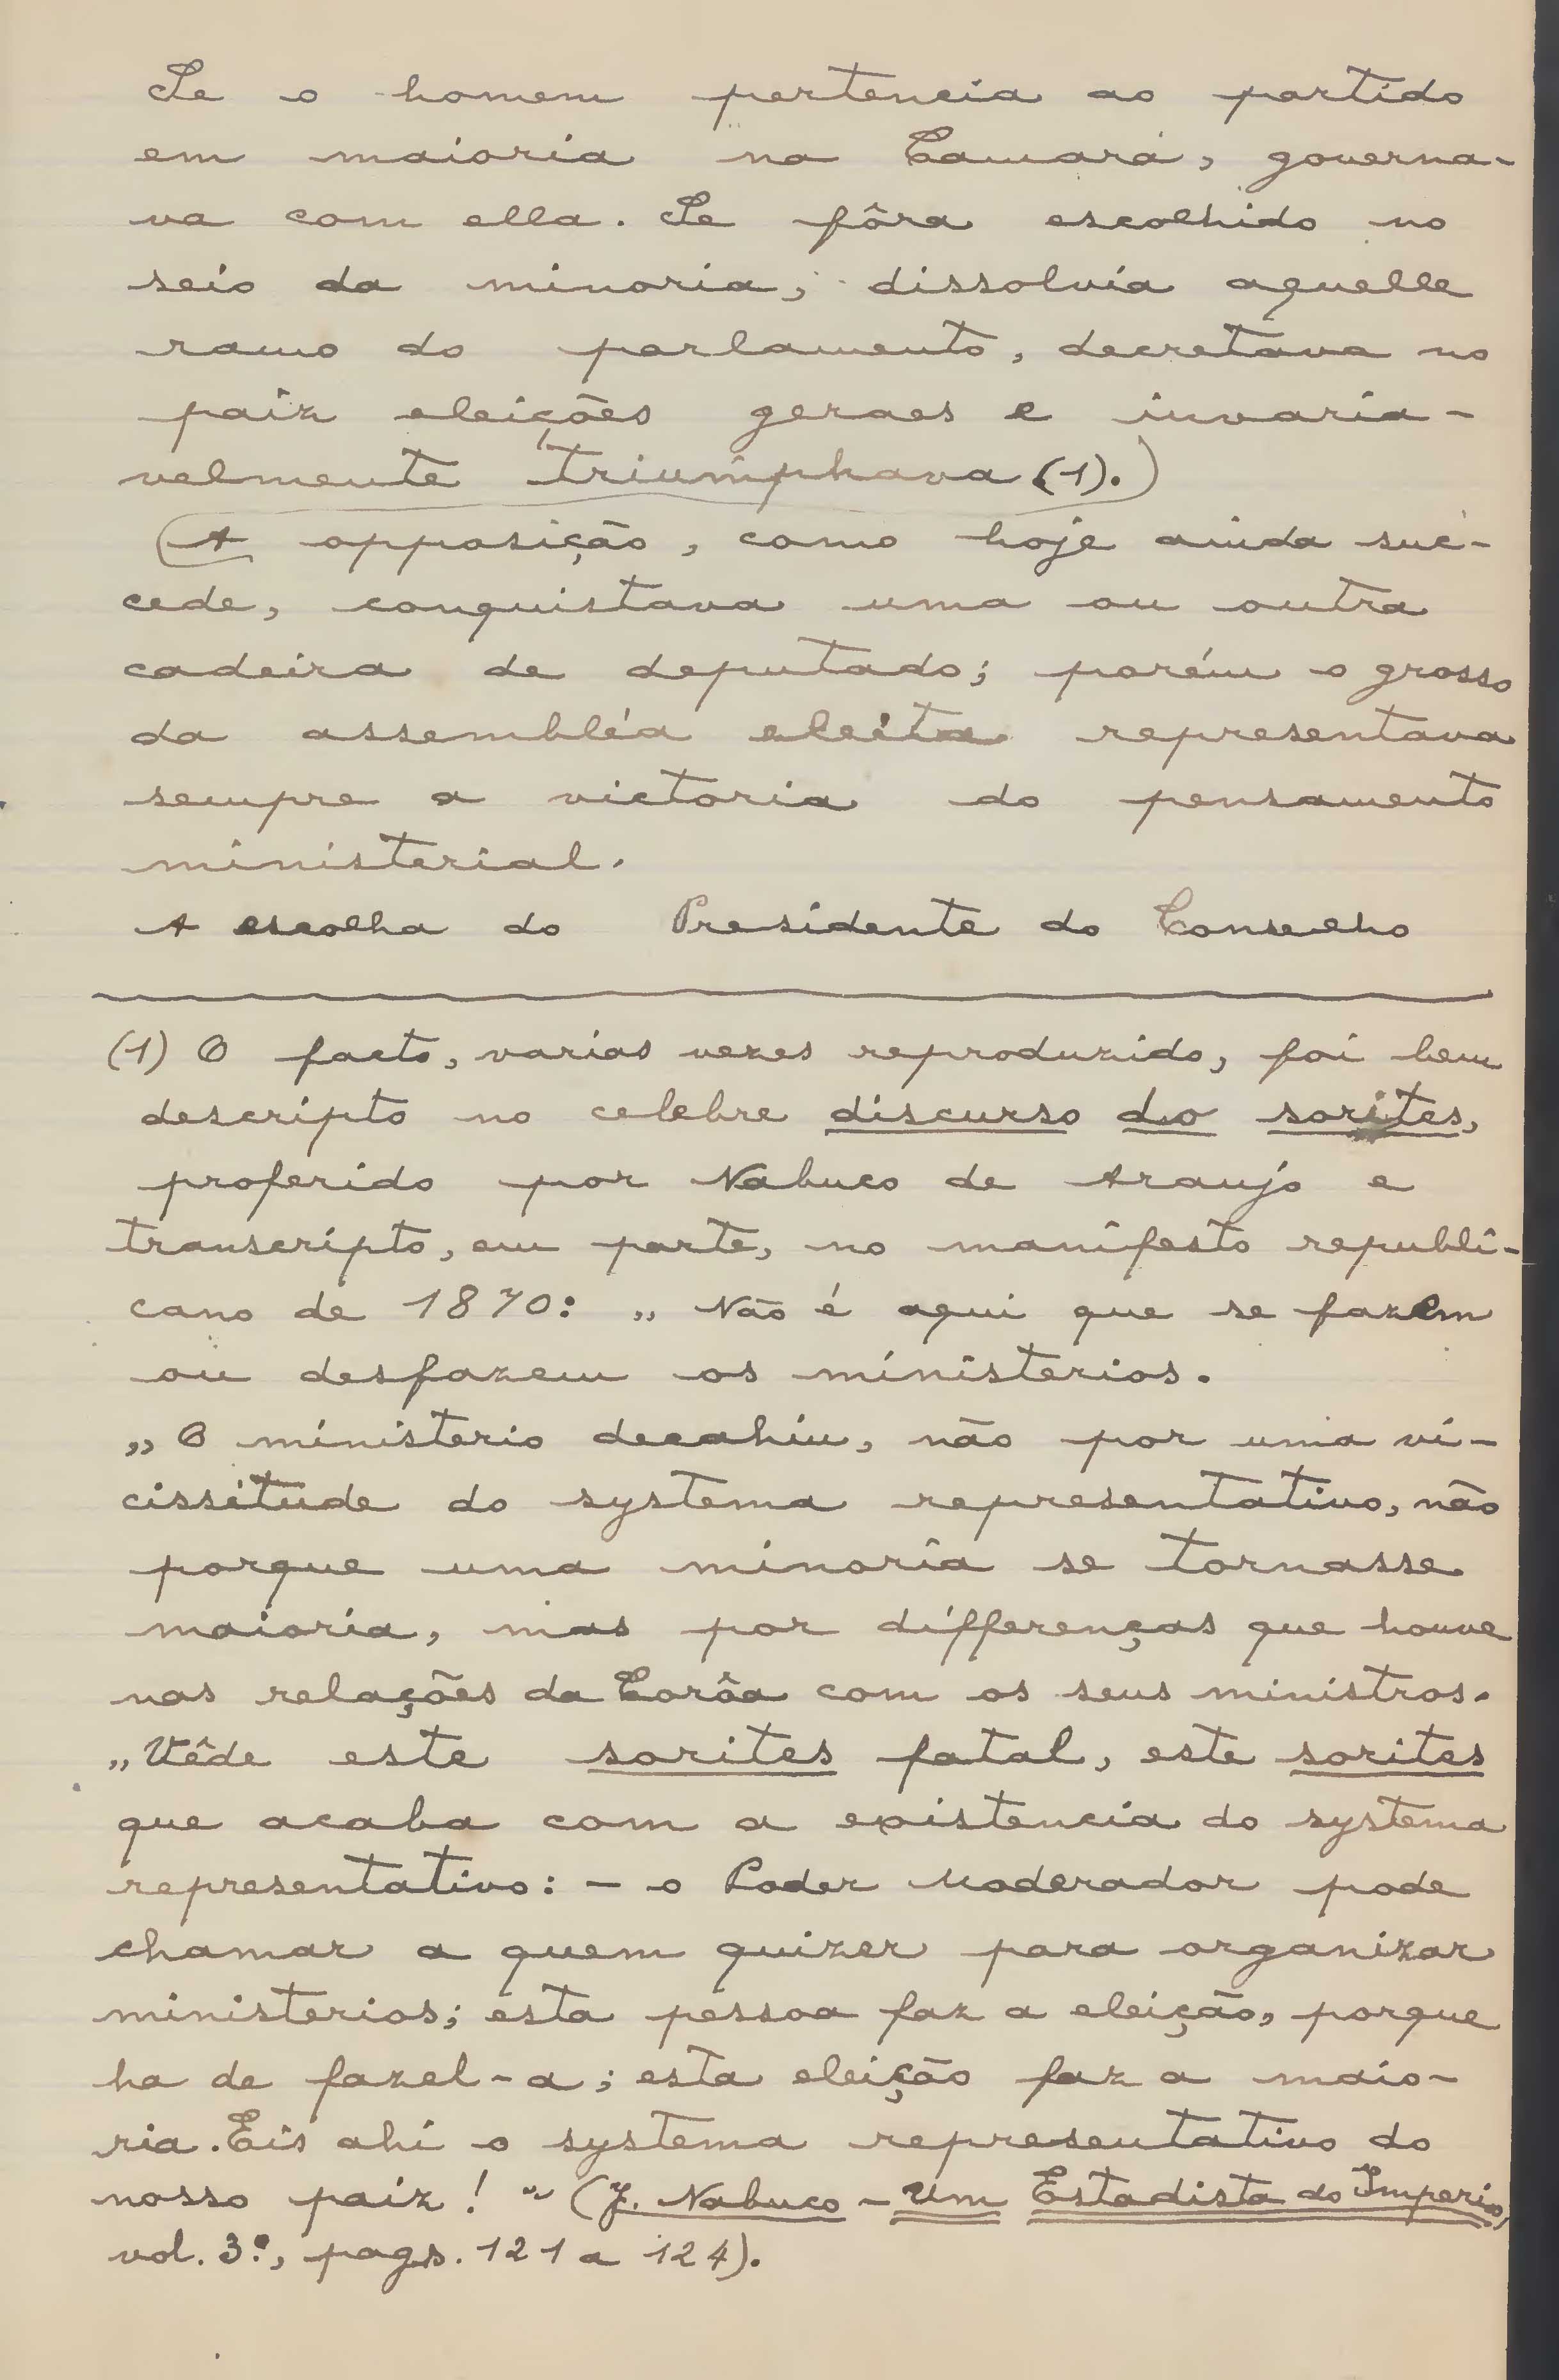 Se o homem pertencia ao partido
em maioria na Camara, governa-
va com ella. Se fôra escolhido no
seio da minoria, dissolvia aquelle
ramo do parlamento, decretava no
paiz eleições geraes e invaria-
velmente triumphava (1).
A opposição, como hoje ainda suc-
cede, conquistava uma ou outra
cadeira de deputado; porém o grosso
da assembléa eleita representava
sempre a victoria do pensamento
ministerial.
A escolha do Presidente do Conselho
(1) O facto, varias vezes reproduzido, foi bem
descripto no celebre discurso do sorites,
proferido por Nabuco de Araujo e
transcripto, em parte, no manifesto republi-
cano de 1870: „ Não é aqui que se fazem
ou desfazem os ministerios.
„ O ministerio decahiu, não por uma vi-
cissitude do systema representativo, não
porque uma minoria se tornasse
maioria, mas por differenças que houve
nas relações da Corôa com os seus ministros.
„ Vêde este sorites fatal, este sorites
que acaba com a existencia do systema
representativo: - o Poder Moderador pode
chamar a quem quizer para organizar
ministerios; esta pessoa faz a eleição, porque
ha de fazel-a; esta eleição faz a maio-
ria. Eis ahi o systema representativo do
nosso paiz! " (J. Nabuco - Um Estadista do Imperio,
vol. 3º, pags. 121 a 124).